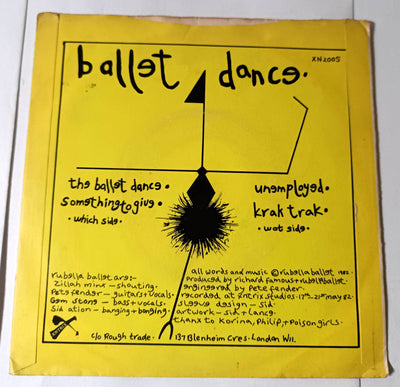 ballet dance.
XN2005
the ballet dance.
something to give.
. which side.
unemployed.
krak trak.
. wot side.
rubella ballet are:-
Zillah minx - shouting.
Pete fender - guitars + vocals.
Gem stone - bass + vocals.
Sid ation - banging + banging.
all words and music © rubella ballet 1982.
produced by richard famous + rubella ballet.
engineered by Pete fender.
recorded at Xntrix studios. 17th - 21st may 82.
sleeve design - sid.
artwork - sid + lance.
thanx to Korina, Philip, + Poison girls.
c/o Rough trade. 137 Blenheim Cres. London W11.